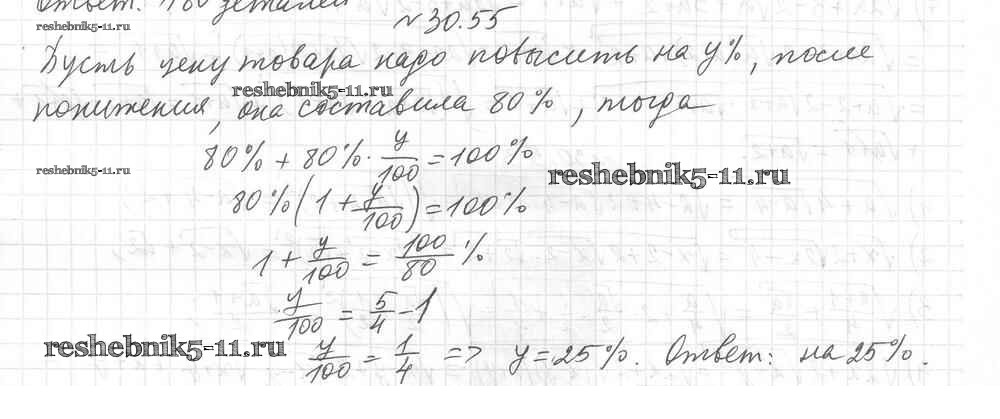 Ответ: 180 деталей
reshebnik5-11.ru
№30.55
Пусть цену товара надо повысить на y%, после
reshebnik5-11.ru
понижения, она составила 80%, тогда
80% + 80% · y/100 = 100%
reshebnik5-11.ru
reshebnik5-11.ru
80% (1 + y/100) = 100%
1 + y/100 = 100/80 %
y/100 = 5/4 - 1
reshebnik5-11.ru
y/100 = 1/4 => y = 25%. Ответ: на 25%.